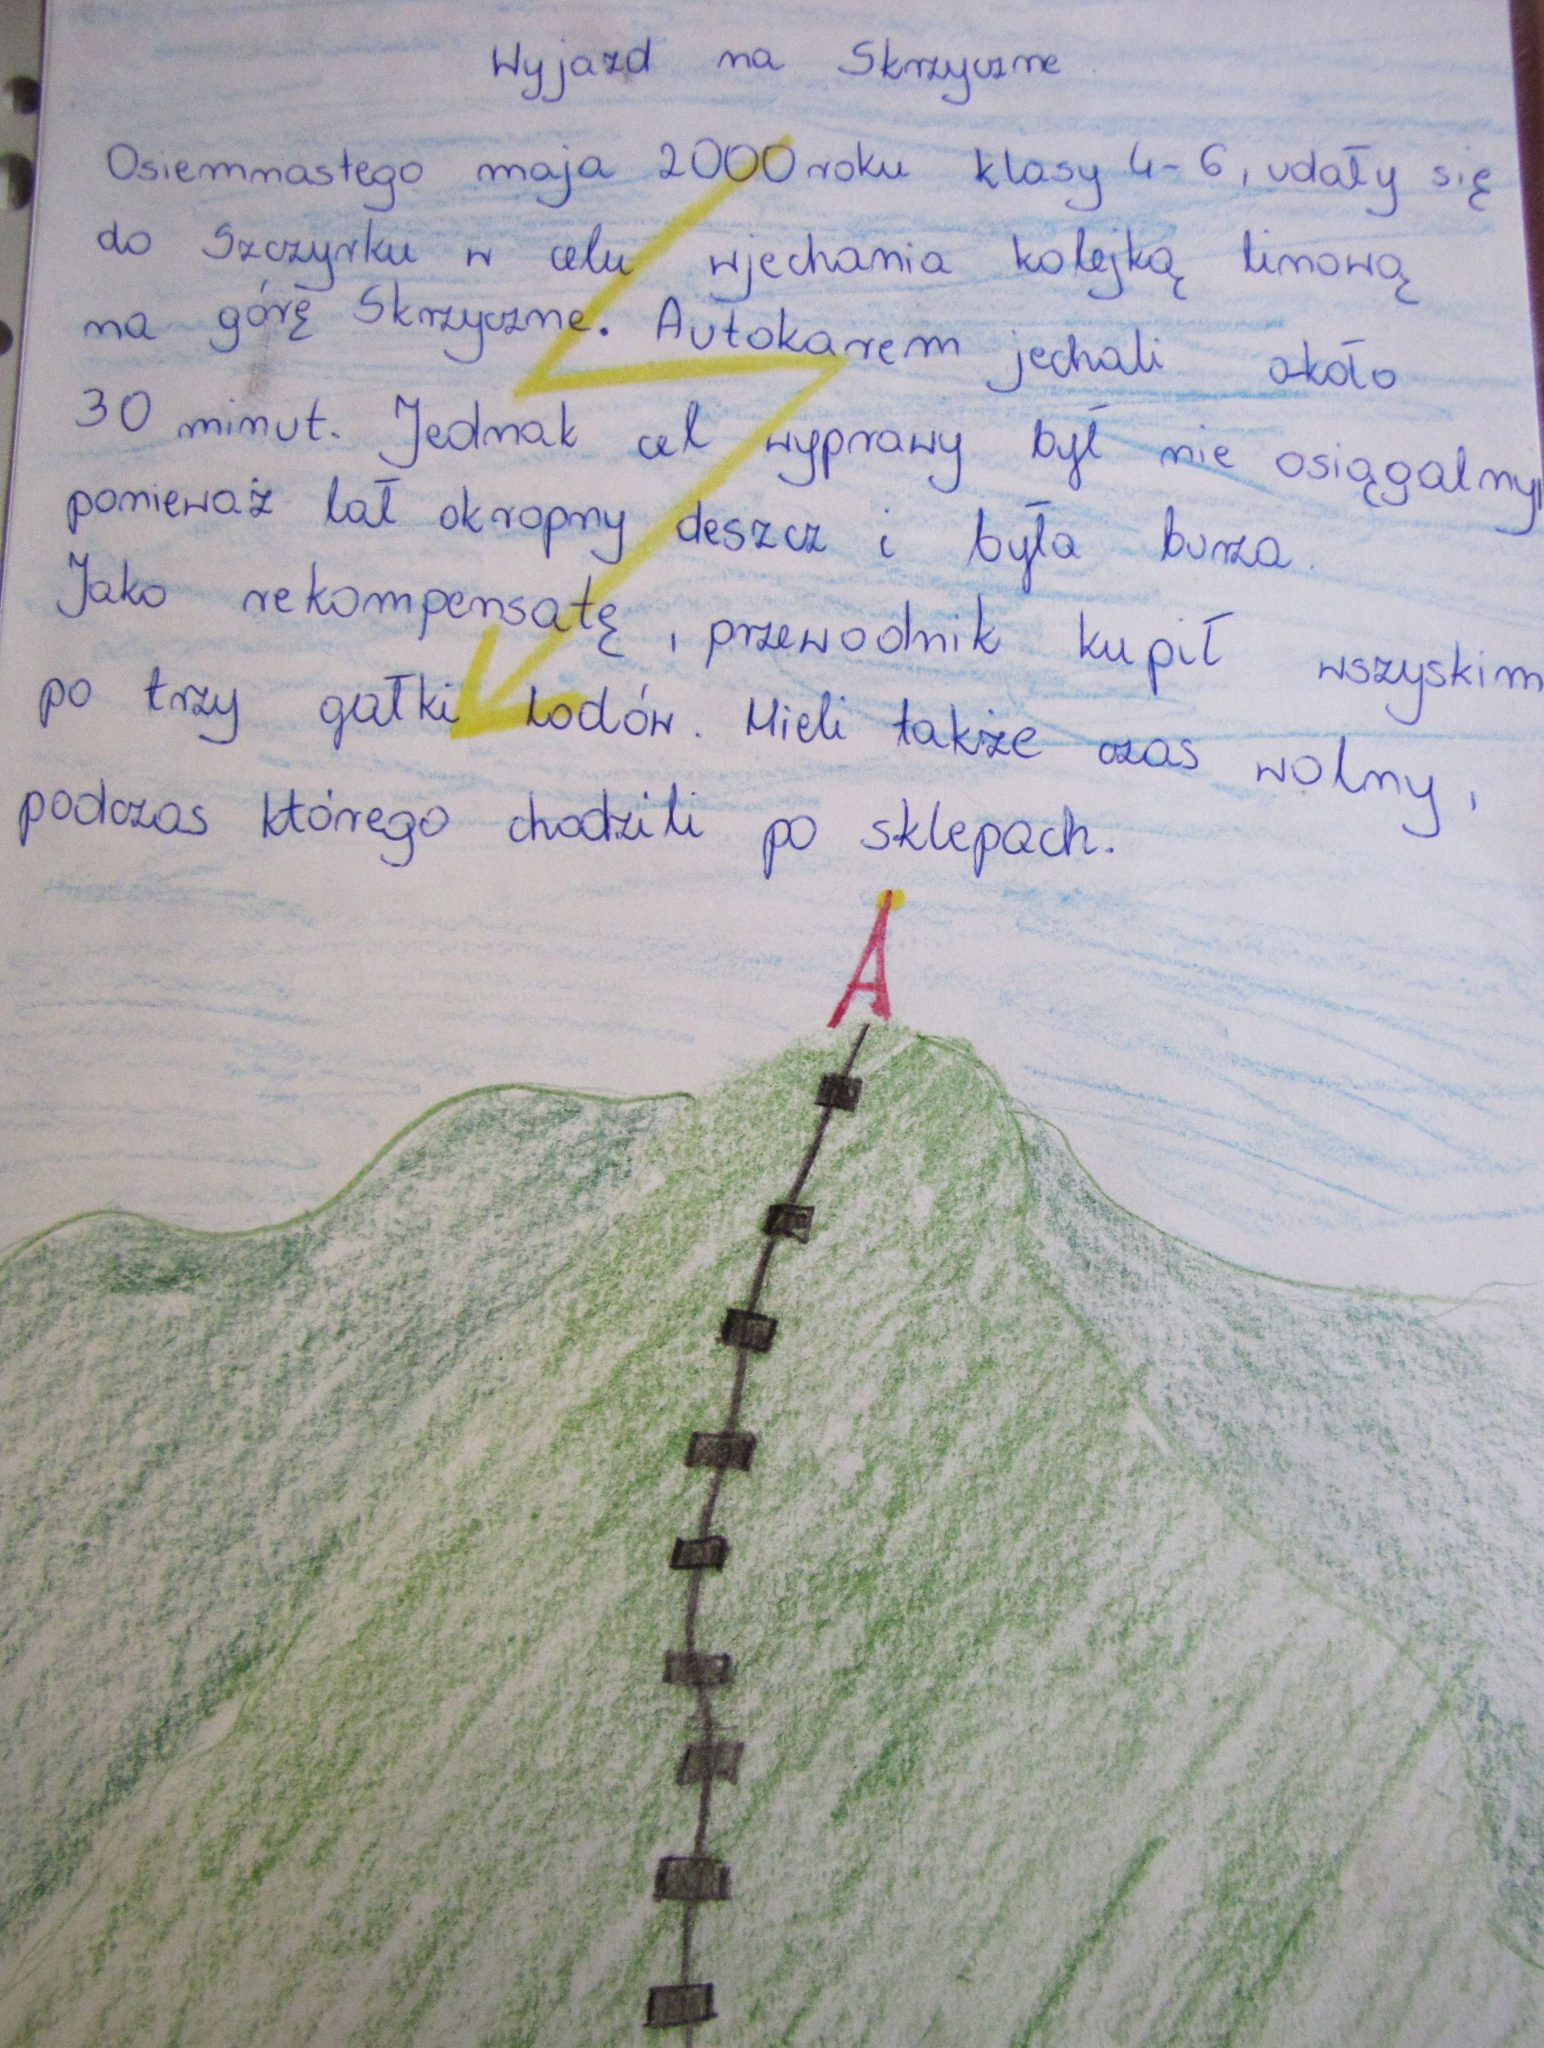 Wyjazd na Skrzyczne
Osiemnastego maja 2000 roku klasy 4-6, udały się
do Szczyrku w celu wjechania kolejką linową
na górę Skrzyczne. Autokarem jechali około
30 minut. Jednak cel wyprawy był nie osiągalny,
ponieważ lał okropny deszcz i była burza.
Jako rekompensatę, przewodnik kupił wszyskim
po trzy gałki lodów. Mieli także czas wolny,
podczas którego chodzili po sklepach.